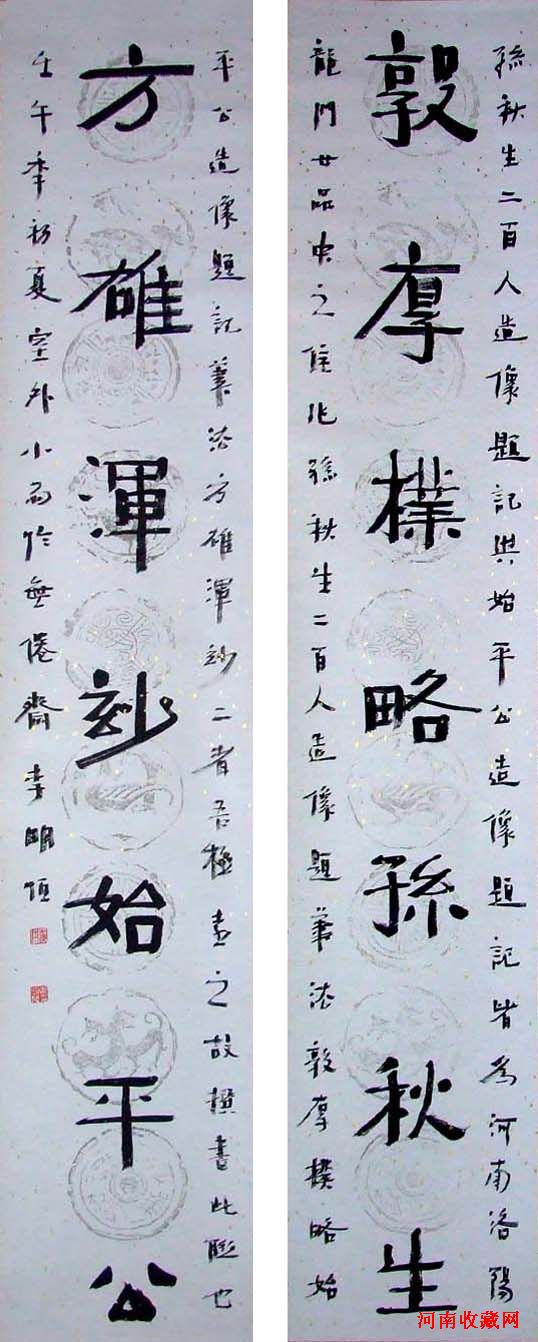 孫秋生二百人造像題記與始平公造像題記皆為河南洛陽
敦厚樸略孫秋生
龍門廿品中之佳作孫秋生二百人造像題記筆法敦厚樸略始
平公造像題記筆法方雄渾妙二者吾極喜之故撰書此聯也
方雄渾妙始平公
壬午年初夏室外小雨於無倦齋李明
河南收藏网